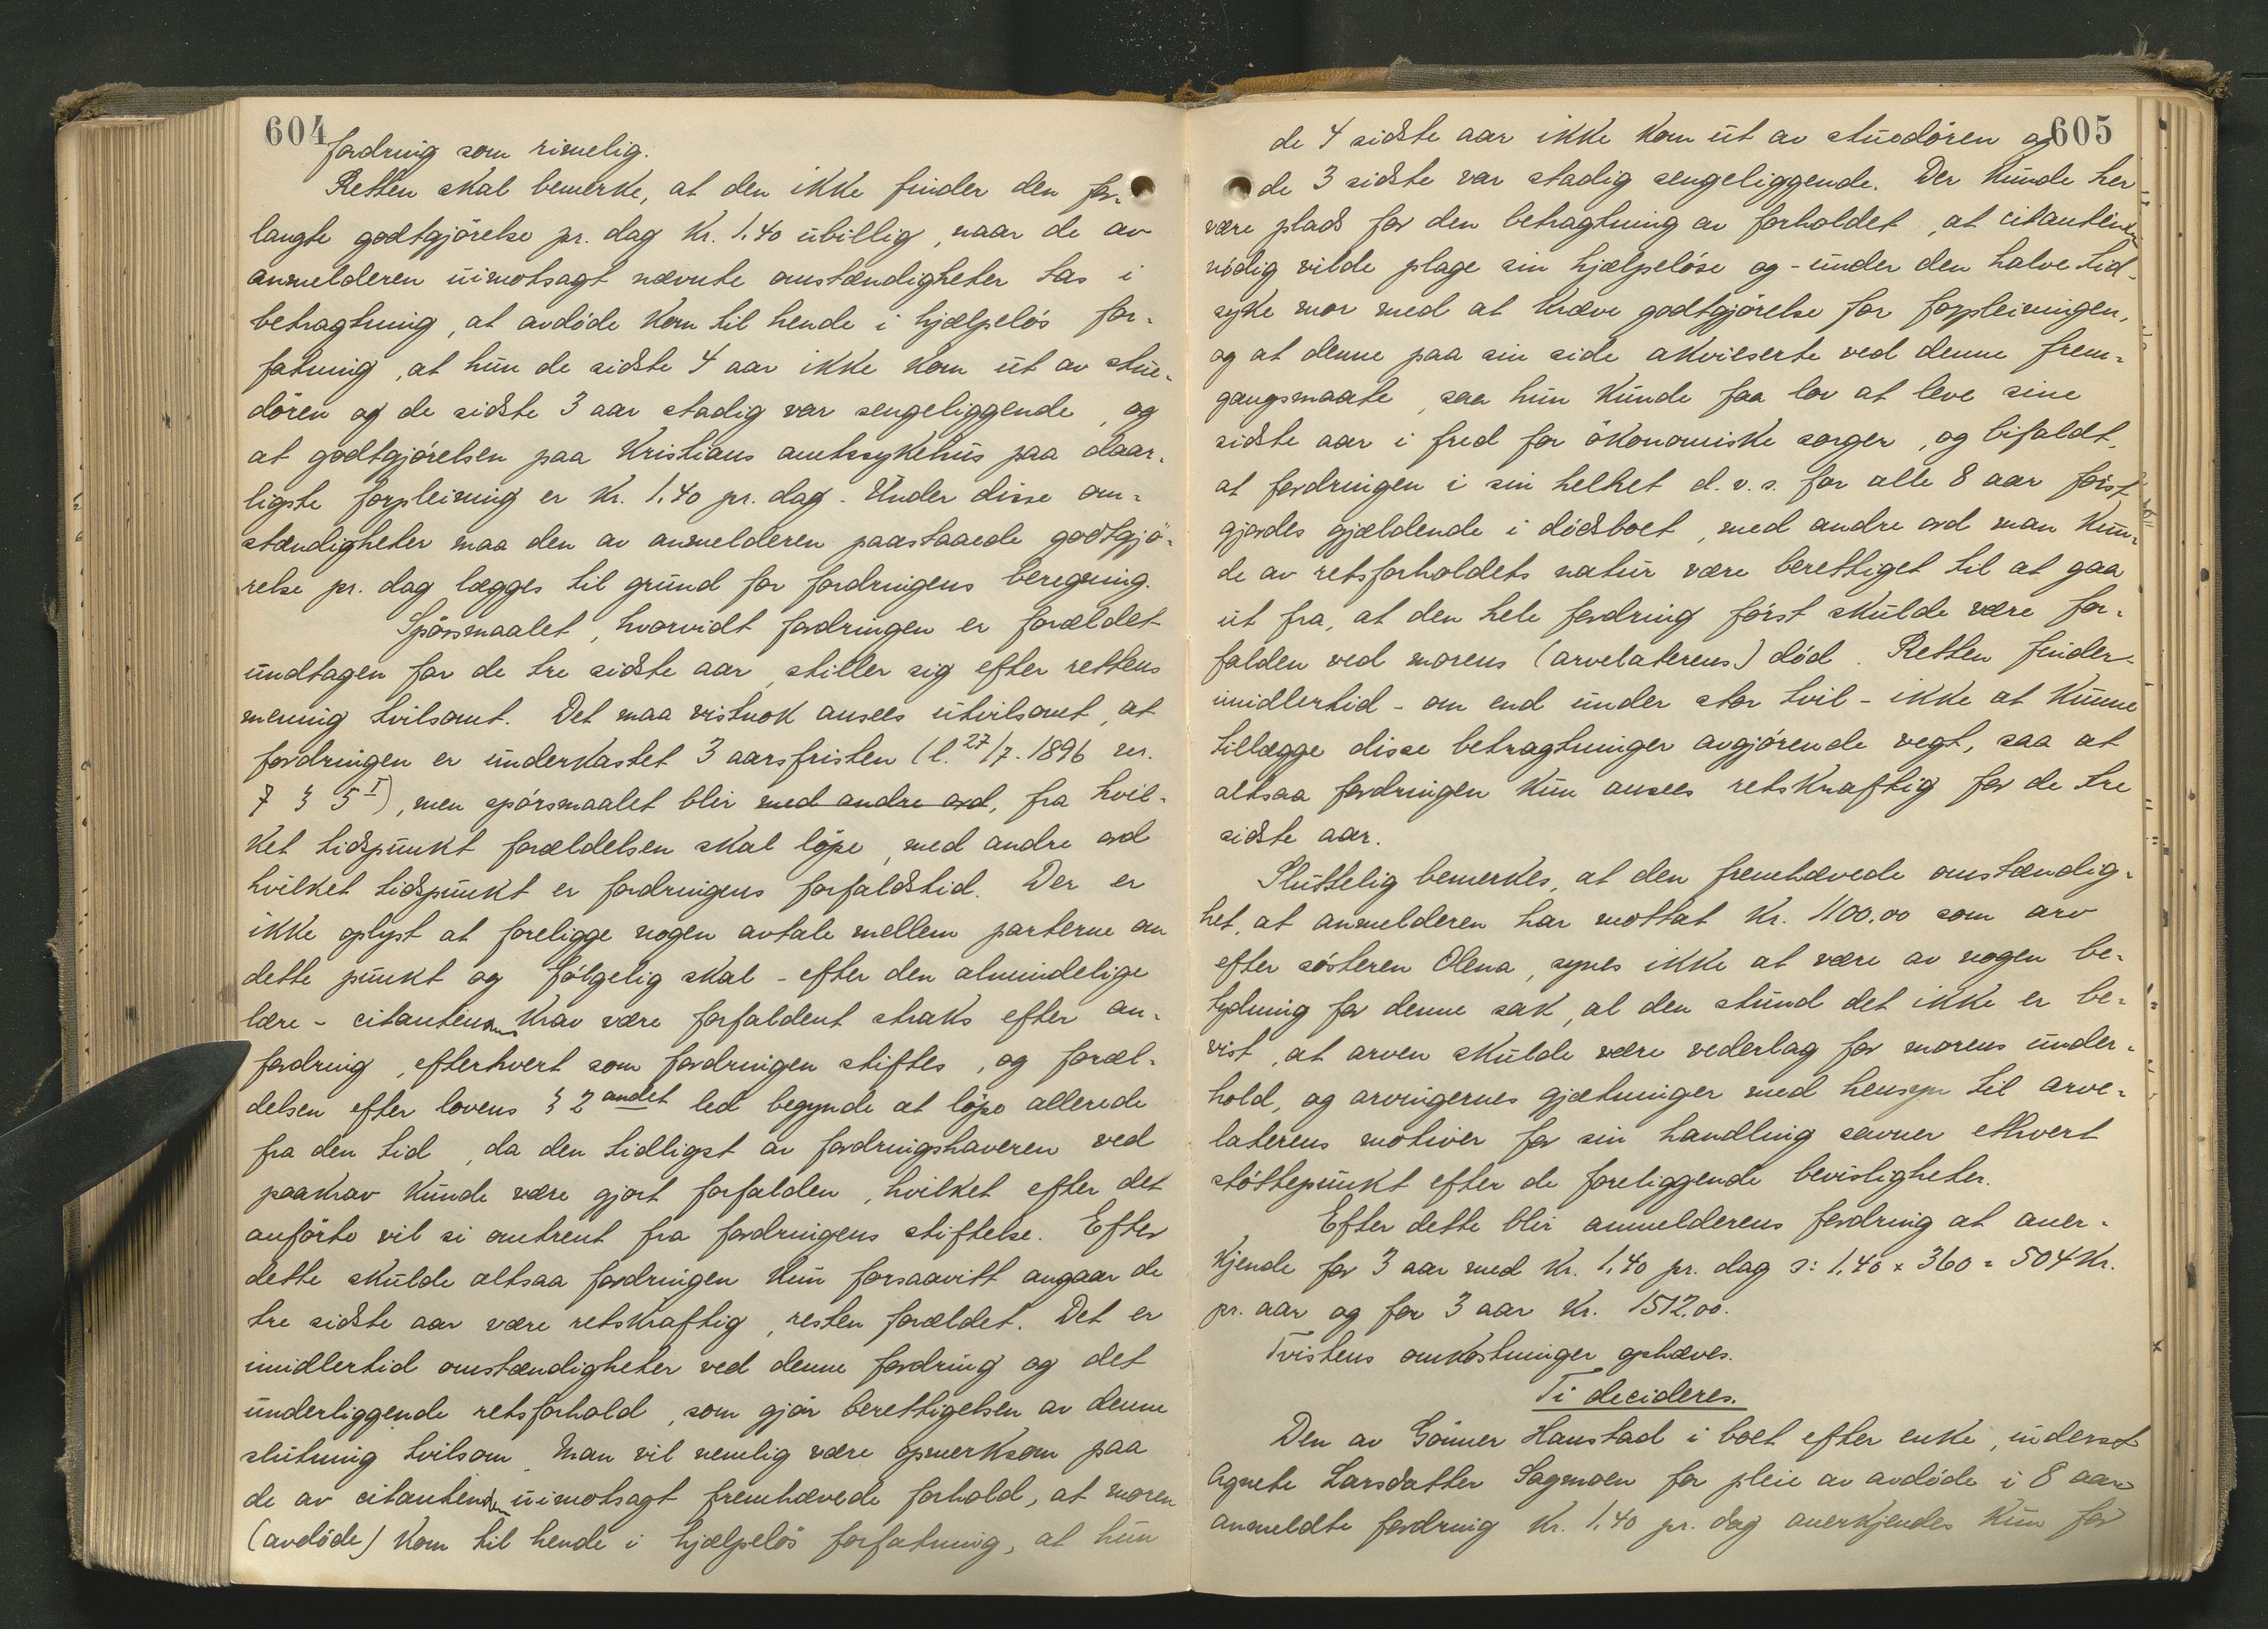 604
fordring som rimelig.
Retten skal bemerke, at den ikke finder den for-
langte godtgjörelse pr. dag Kr. 1.40 ubillig, naar de av
anmelderen uimotsagt nævnte omstændigheter tas i
betragtning, at avdöde kom til hende i hjælpelös for-
fatning, at hun de sidste 4 aar ikke kom ut av stue-
dören og de sidste 3 aar stadig var sengeliggende, og
at godtgjörelsen paa Kristians amtssykehus paa daar-
ligste forpleining er Kr. 1.40 pr. dag. Under disse om-
stændigheter maa den av anmelderen paastaaede godtgjö-
relse pr. dag lægges til grund for fordringens beregning.
Spörsmaalet, hvorvidt fordringen er forældet
undtagen for de tre sidste aar, stiller sig efter rettens
mening tvilsomt. Det maa vistnok ansees utvilsomt, at
fordringen er underkastet 3 aarsfristen (l. 27/7. 1896 nr.
7 § 5 I), men spörsmaalet blir med andre ord, fra hvil-
ket tidspunkt forældelsen skal löpe, med andre ord
hvilket tidspunkt er fordringens forfaldstid. Der er
ikke oplyst at foreligge nogen avtale mellem parterne om
dette punkt og fölgelig skal - efter den almindelige
lære - citantindens krav være forfaldent straks efter an-
fordring, efterhvert som fordringen stiftes, og foræl-
delsen efter lovens § 2 andet led begynde at löpe allerede
fra den tid, da den tidligst av fordringshaveren ved
paakrav kunde være gjort forfalden, hvilket efter det
anförte vil si omtrent fra fordringens stiftelse. Efter
dette skulde altsaa fordringen kun forsaavitt angaar de
tre sidste aar være retskraftig, resten forældet. Det er
imidlertid omstændigheter ved denne fordring og det
underliggende retsforhold, som gjör berettigelsen av denne
slutning tvilsom. Man vil nemlig være opmerksom paa
de av citantinden uimotsagt fremhævede forhold, at moren
(avdöde) kom til hende i hjælpelös forfatning, at hun
605
de 4 sidste aar ikke kom ut av stuedören og
de 3 sidste var stadig sengeliggende. Der kunde her
være plads for den betragtning av forholdet, at citantinden
nödig vilde plage sin hjælpelöse og - under den halve tid -
syke mor med at kræve godtgjörelse for forpleiningen,
og at denne paa sin side akvieserte ved denne frem-
gangsmaate, saa hun kunde faa lov at leve sine
sidste aar i fred for ökonomiske sorger, og bifaldt,
at fordringen i sin helhet d. v. s. for alle 8 aar först
gjordes gjældende i dödsboet, med andre ord man kun-
de av retsforholdets natur være berettiget til at gaa
ut fra, at den hele fordring först skulde være for-
falden ved morens (arvelaterens) död. Retten finder
imidlertid - om end under stor tvil - ikke at kunne
tillægge disse betragtninger avgjörende vegt, saa at
altsaa fordringen kun ansees retskraftig for de tre
sidste aar.
Sluttelig bemerkes, at den fremhævede omstændig-
het, at anmelderen har mottat Kr. 1100.00 som arv
efter sösteren Olena, synes ikke at være av nogen be-
tydning for denne sak, al den stund det ikke er be-
vist, at arven skulde være vederlag for morens under-
hold, og arvingernes gjætninger med hensyn til arve-
laterens motiver for sin handling savner ethvert
stöttepunkt efter de foreliggende bevisligheter.
Efter dette blir anmelderens fordring at aner-
kjende for 3 aar med Kr. 1.40 pr. dag ɔ: 1.40 x 360 = 504 Kr.
pr. aar og for 3 aar Kr. 1512.00.
Tvistens omkostninger ophæves.
Ti decideres.
Den av Gönner Hanstad i boet efter enke, inderst
Agnete Larsdatter Sagmoen for pleie av avdöde i 8 aar
anmeldte fordring Kr. 1.40 pr. dag anerkjendes kun for